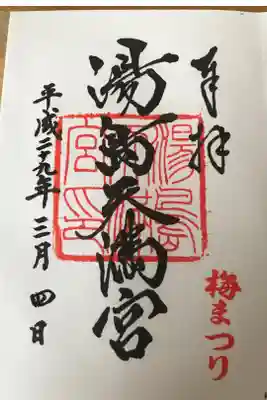 奉拝
湯島天満宮
平成二十九年三月四日
梅まつり